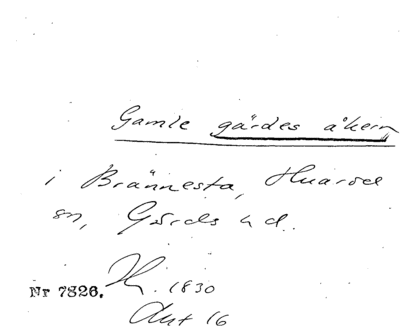 Gamle gärdes åkern
i Brännesta, Huarsd
sn, Gärds hd.
Nr 7826. 1830
Akt 16